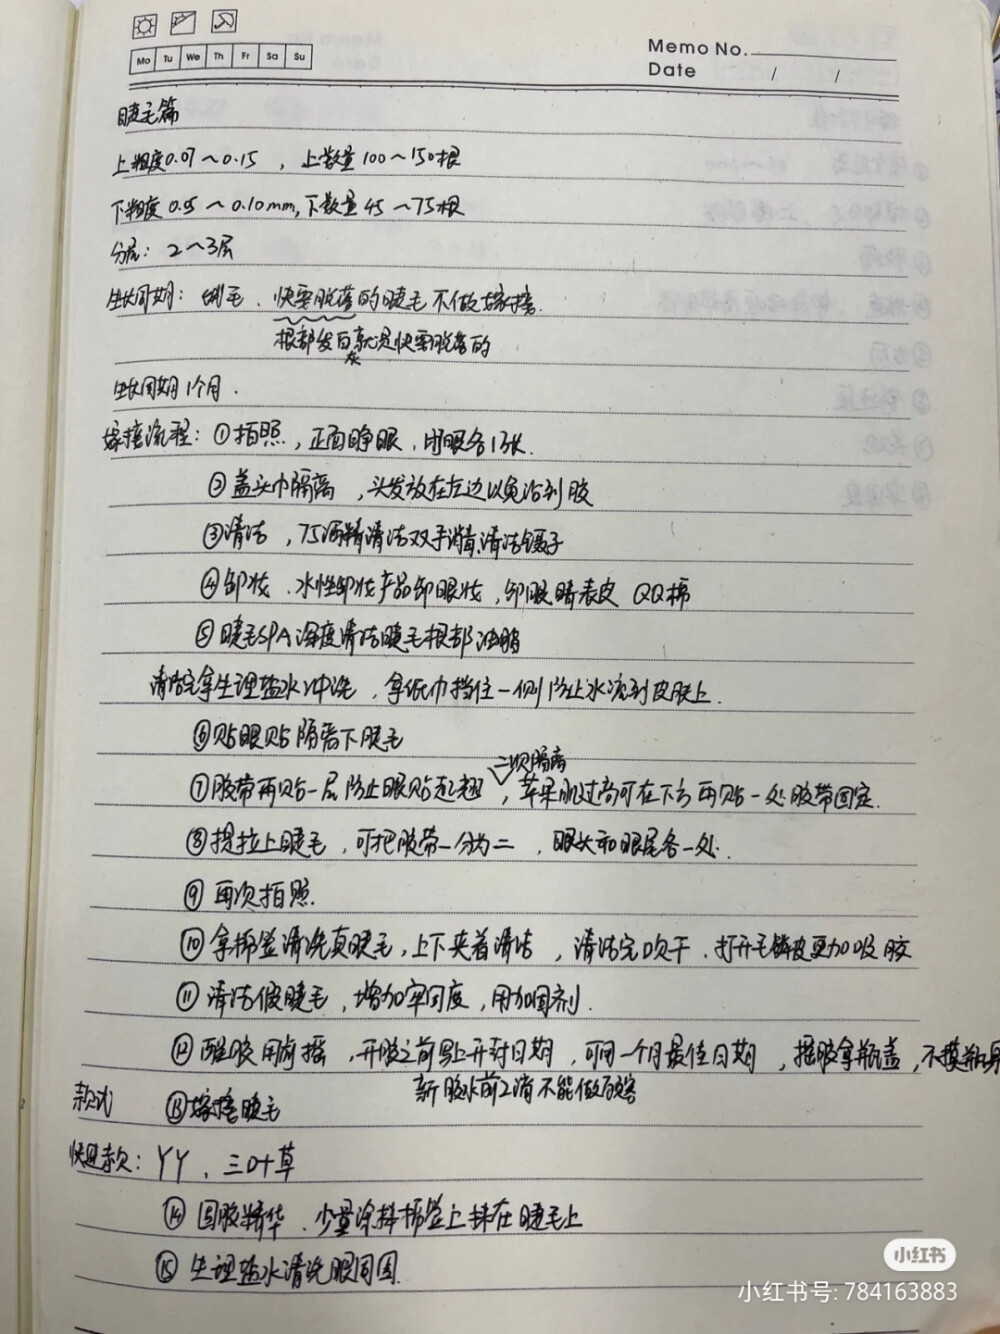 Mo Tu We Th Fr Sa Su
Memo No.
Date / /
睫毛篇
上粗度0.07～0.15 ，上数量100～150根
下粗度0.05～0.10mm,下数量45～75根
分层：2～3层
生长周期： 、快要脱落的睫毛不做嫁接.
根部发白就是快要脱落的
生长周期1个月.
嫁接流程：①拍照，正面睁眼，闭眼各1张.
②盖头巾隔离，头发放在左边以免沾到胶
③清洁，75酒精清洁双手消毒清洁镊子
④卸妆、水性卸妆产品卸眼妆，卸眼睛表皮 QQ棉
⑤睫毛SPA深度清洁睫毛根部油脂
清洁完拿生理盐水冲洗，拿纸巾挡住一侧防止水流到皮肤上.
⑥贴眼贴隔离下睫毛
二次隔离
⑦胶带再贴一层防止眼贴起翘，苹果肌过高可在下方再贴一处胶带固定.
⑧提拉上睫毛，可把胶带一分为二，眼头和眼尾各一处.
⑨再次拍照.
⑩拿棉签清洗真睫毛，上下夹着清洁，清洁完吹干、打开毛鳞皮更加吸胶
⑪清洁假睫毛，增加牢固度，用加固剂.
⑫醒胶 摇，开胶之前写上开封日期，可用一个月最佳日期，摇胶拿瓶盖，不摸瓶身
新胶水前2滴不能做顾客
款式 ⑬嫁接睫毛
快速款：YY、三叶草
⑭固胶精华、少量涂抹棉签上抹在睫毛上
⑮生理盐水清洗眼周围.
小红书
小红书号: 784163883